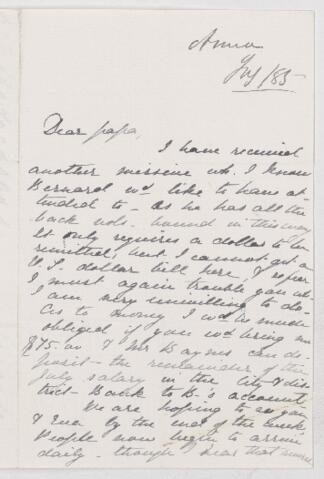 Anna
July/85
Dear papa,
I have received
another missive wh. I know
Bernard wd like to have at-
tended to - as he has all the
back vols. bound in this way
It only requires a dollar to be
remitted, but I cannot get a
U.S. dollar bill here, & fear
I must again trouble you wh.
I am very unwilling to do -
As to money I wd be much
obliged if you wd bring me
$75.00 & Mr Baynes can de-
posit the remainder of the
July salary in the City & Dis-
trict Bank to B.'s account
We are hoping to see you
& Eva by the end of the week
People now begin to arrive
daily - though I hear that